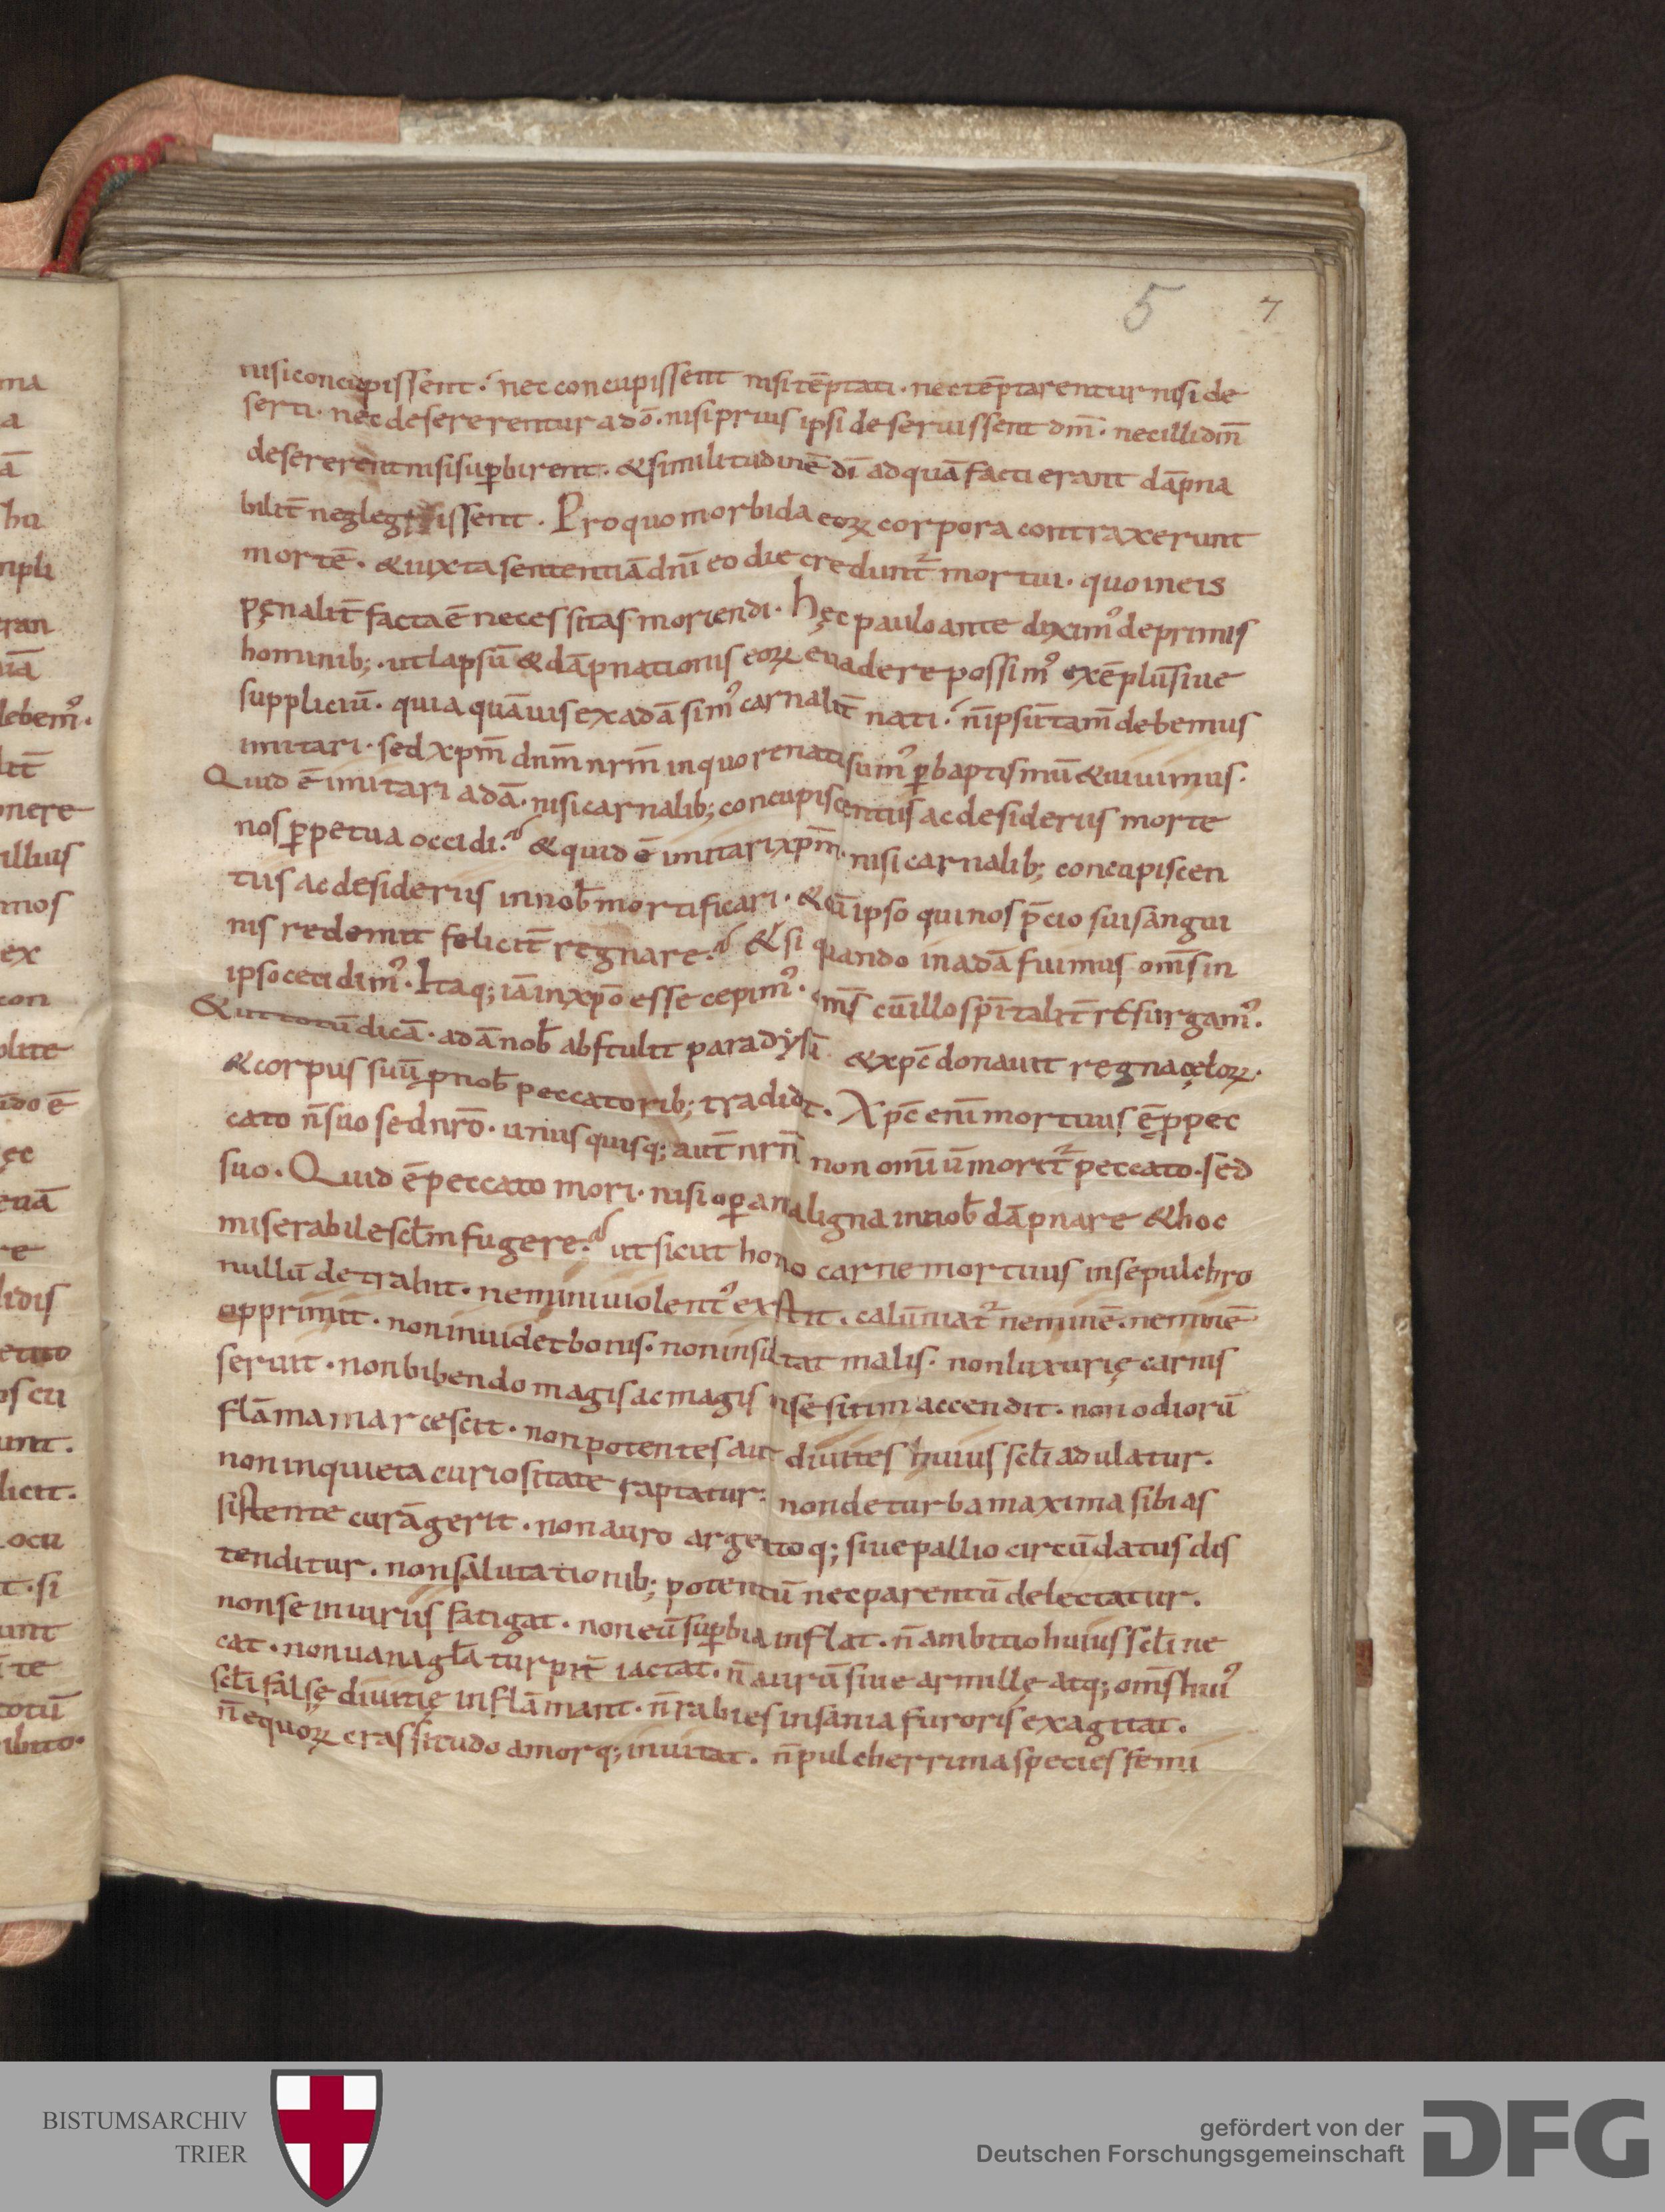 5 7
nisi concupissent. nec concupissent nisi tēptati. nec tēptarentur nisi de
serti. nec desererentur a dō. nisi prius ipsi deseruissent dn̄m. nec illi dn̄m
desererent nisi suꝑbirent. & similitudinē dī ad quā facti erant dāpna
bilit̄ neglegissent. Pro quo morbida eoꝝ corpora contraxerunt
mortē. & iuxta sententiā dn̄i eo die credunt᷑ mortui. quo in eis
pęnalit̄ facta ē necessitas moriendi. hęc paulo ante diximꝰ de primis
hominib; . ut lapsū & dāpnationis eoꝝ euadere possimꝰ exēplū siue
suppliciū. quia quāuis ex adā simꝰ carnalit̄ nati. n̄ ipsū tam̄ debemus
imitari. sed xp̄m dn̄m nr̄m in quo renati sumꝰ ꝑ baptismū & uiuimus.
Quid ē imitari adā. nisi carnalib; concupiscentiis ac desideriis morte
nos ꝑpetua occidi? & quid ē imitari xp̄m. nisi carnalib; concupiscen
tiis ac desideriis in nob̄ mortificari. & cū ipso qui nos p̄cio sui sangui
nis redemit felicit̄ regnare? & si quando in adā fuimus om̄s in
ipso cecidimꝰ. Itaq; iā in xp̄o esse cepimꝰ. om̄s cū illo sp̄italit̄ resurgamꝰ.
& ut totū dicā. adā nob̄ abstulit paradẏsī & xp̄c donauit regna cęloꝝ.
& corpus suū ꝓ nob̄ peccatorib; tradidit. Xp̄c enī mortuus ē ꝓ pec
cato n̄ suo sed nr̄o. unusquisq; aut̄ nr̄n̄ non omīū morit᷑ peccato. sed
suo. Quid ē peccato mori. nisi oꝑa maligna in nob̄ dāpnare & hoc
miserabile sc̄lm fugere? ut sicut homo carne mortuus in sepulchro
nullū detrahit. nemini uiolentꝰ exstit. calūniat᷑ neminē. neminē
opprimit. non inuidet bonis. non insultat malis. non luxurię carnis
seruit. non bibendo magis ac magis in se sitim accendit. non odiorū
flāma marcescit. non potentes aut diuites huius sc̄li adulatur.
non inquieta curiositate raptatur. non de turba maxima sibi as
sistente curā gerit. non auro argentoq; siue pallio circūdatus dis
tenditur. non salutationib; potentū nec parentū delectatur.
non se iniuriis fatigat. non eū suꝑbia inflat. n̄ ambitio huius sc̄li ne
cat. non uana gl̄a turpit̄ iactat. n̄ aurū siue armillę atq; om̄s huiꝰ
sc̄li falsę diuitię inflāmant. n̄ rabies insania furoris exagitat.
n̄ equoꝝ crassitudo amorq; inuitat. n̄ pulcherrima species femi
BISTUMSARCHIV
TRIER
gefördert von der
Deutschen Forschungsgemeinschaft
DFG